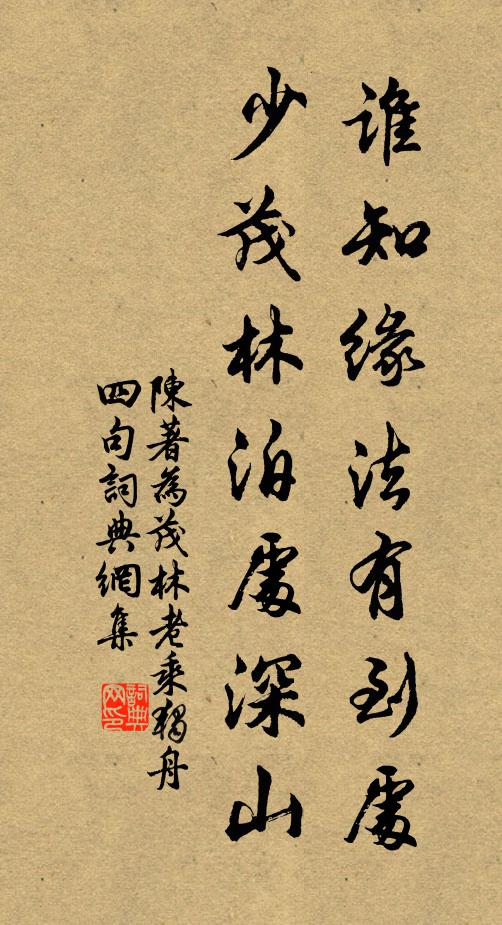 誰知緣法有到處
少茂林泊處深山
陳著為茂林老乘獨舟
四句詞典網集
詞典
网印